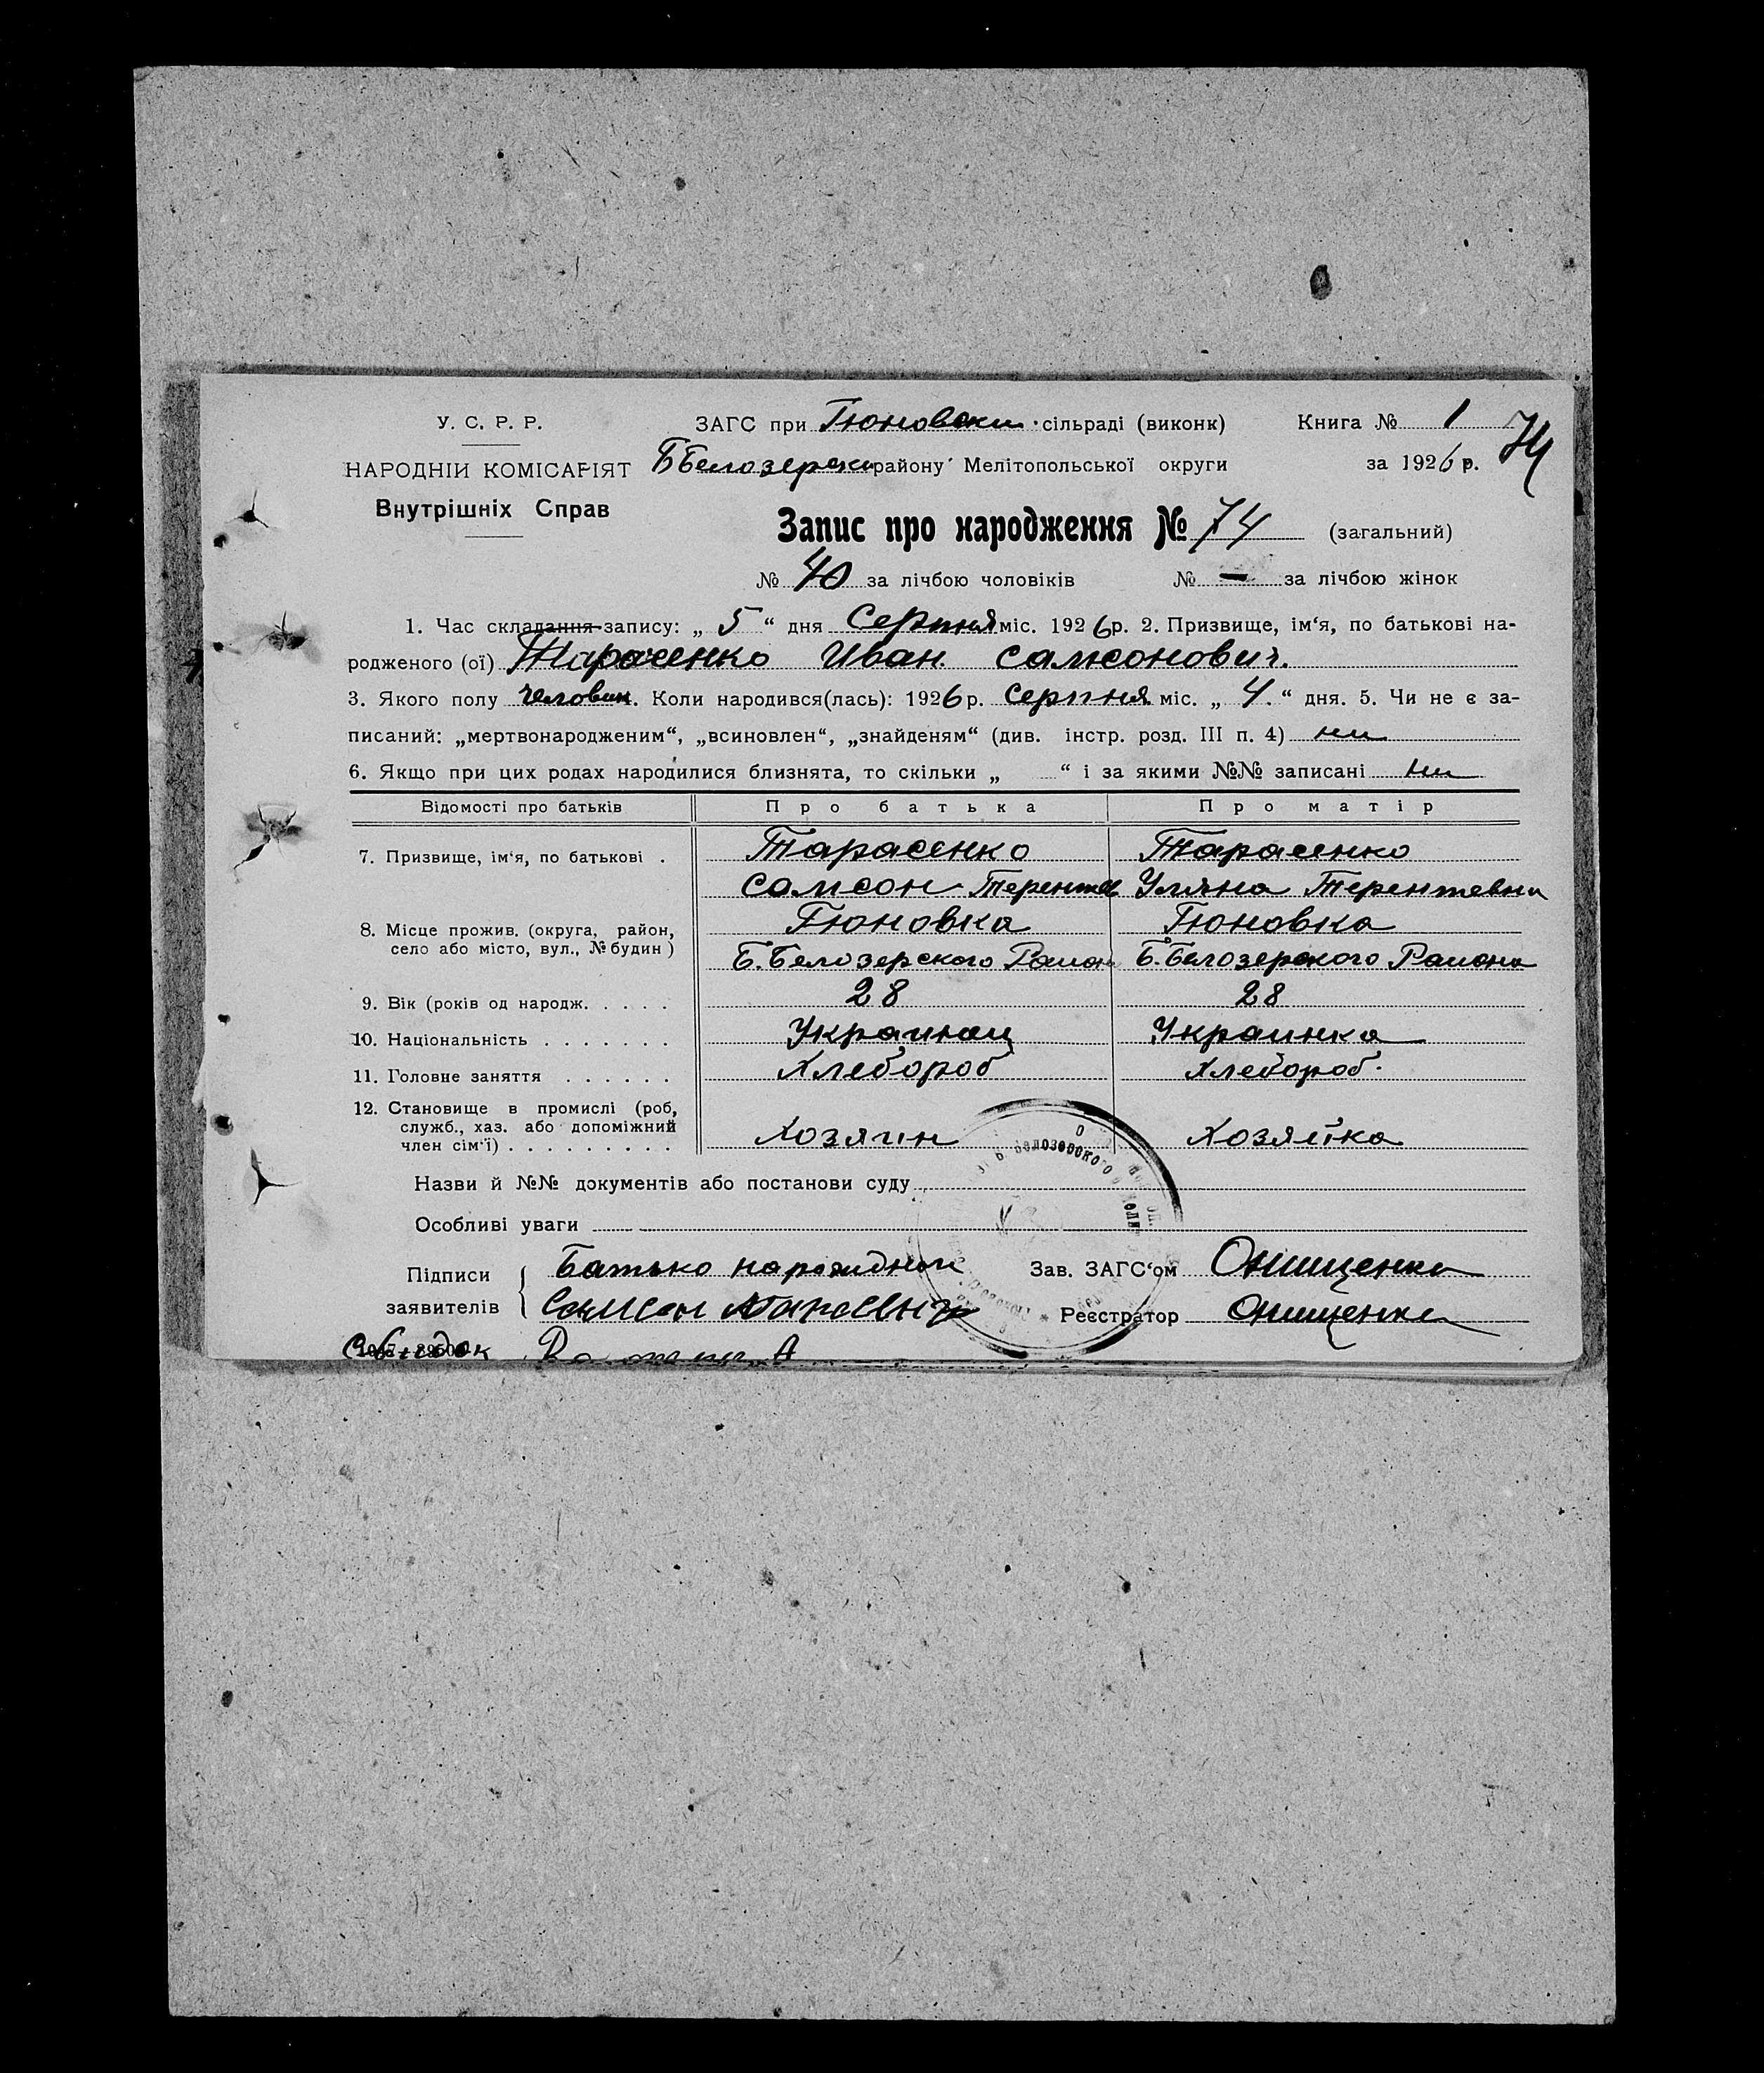 У. С. Р. Р.
НАРОДНІЙ КОМІСАРІЯТ
Внутрішніх Справ
ЗАГС при Гюновски сільраді (виконк)
Б Белозерски району Мелітопольської округи
Книга № 1
за 1926 р.
74
Запис про народження № 74 (загальний)
№ 40 за лічбою чоловіків № — за лічбою жінок
1. Час складання запису: „ 5 “ дня Серпня міс. 1926 р. 2. Призвище, ім‘я, по батькові на-
родженого (ої) Тарасенко Иван Самсонович.
3. Якого полу человик. Коли народився(лась): 1926 р. Серпня міс. „ 4. “ дня. 5. Чи не є за-
писаний: „мертвонародженим“, „всиновлен“, „знайденям“ (див. інстр. розд. III п. 4) ни
6. Якщо при цих родах народилися близнята, то скільки „ “ і за якими №№ записані ни
Відомості про батьків Про батька Про матір
7. Призвище, ім‘я, по батькові . Тарасенко Тарасенко
Самсон Терентев Уляна Терентевна
8. Місце прожив. (округа, район, Гюновка Гюновка
село або місто, вул., № будин ) Б. Белозерского Район Б. Белозерского Района
9. Вік (років од народж. . . . . 28 28
10. Національність . . . . . . . Украинец Украинка
11. Головне заняття . . . . . . Хлебороб Хлебороб.
12. Становище в промислі (роб,
служб., хаз. або допоміжний
член сім‘ї) . . . . . . . . . Хозяин Хозяйка
Назви й №№ документів або постанови суду
Особливі уваги
Підписи
заявителів
Батько
Самсон
Зав. ЗАГС‘ом Онищенко
Реєстратор Онищенко